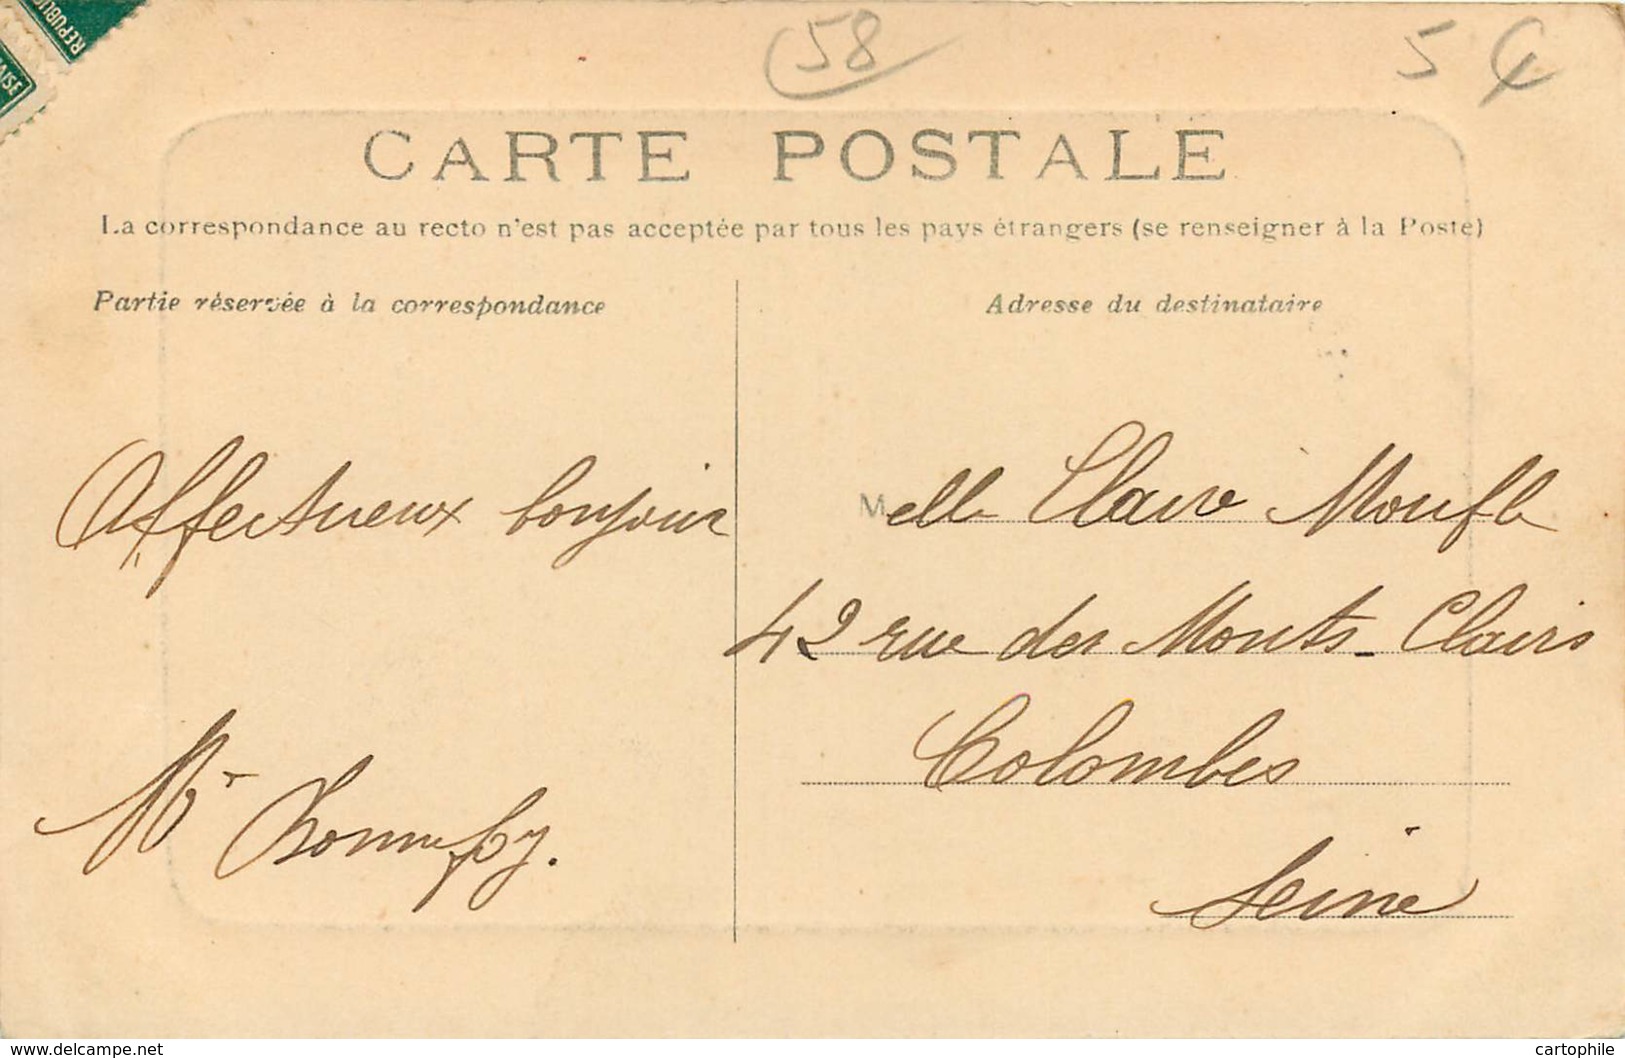 REPUBLIQ
AISE
58
5 €
CARTE POSTALE
La correspondance au recto n'est pas acceptée par tous les pays étrangers (se renseigner à la Poste)
Partie réservée à la correspondance
Adresse du destinataire
Affectueux bonjour
Melle Claire Moufle
42 rue des Monts-Clairs
Colombes
Seine
www.delcampe.net
cartophile